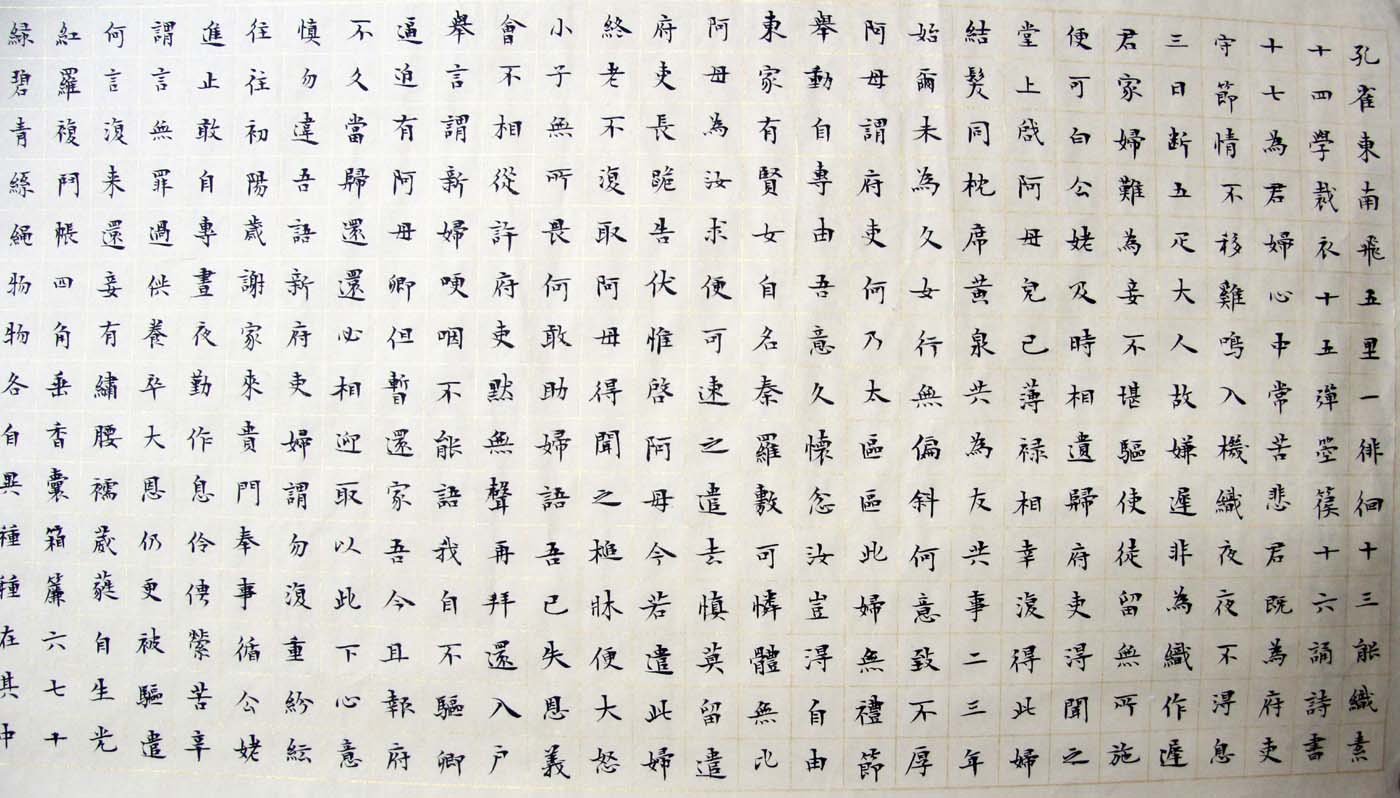 孔雀東南飛五里一徘徊十三能織素
十四學裁衣十五彈箜篌十六誦詩書
十七為君婦心中常苦悲君既為府吏
守節情不移雞鳴入機織夜夜不得息
三日断五疋大人故嫌遲非為織作遲
君家婦難為妾不堪驅使徒留無所施
便可白公姥及時相遺歸府吏得聞之
堂上啟阿母兒已薄禄相幸復得此婦
結髮同枕席黃泉共為友共事二三年
始爾未為久女行無偏斜何意致不厚
阿母謂府吏何乃太區區此婦無禮節
舉動自專由吾意久懷忿汝豈得自由
東家有賢女自名秦羅敷可憐體無比
阿母為汝求便可速之遣去慎莫留遣
府吏長跪告伏惟啓阿母今若遣此婦
終老不復取阿母得聞之槌牀便大怒
小子無所畏何敢助婦語吾已失恩義
會不相從許府吏默無聲再拜還入户
舉言謂新婦哽咽不能語我自不驅卿
逼迫有阿母卿但暫還家吾今且報府
不久當歸還還必相迎取以此下心意
慎勿違吾語新府吏婦謂勿復重紛紜
往往初陽歲謝家來貴門奉事循公姥
進止敢自專晝夜勤作息伶俜縈苦辛
謂言無罪過供養卒大恩仍更被驅遣
何言復来還妾有繡腰襦葳蕤自生光
紅羅複鬥帳四角垂香囊箱簾六七十
緑碧青絲繩物物各自異種種在其中